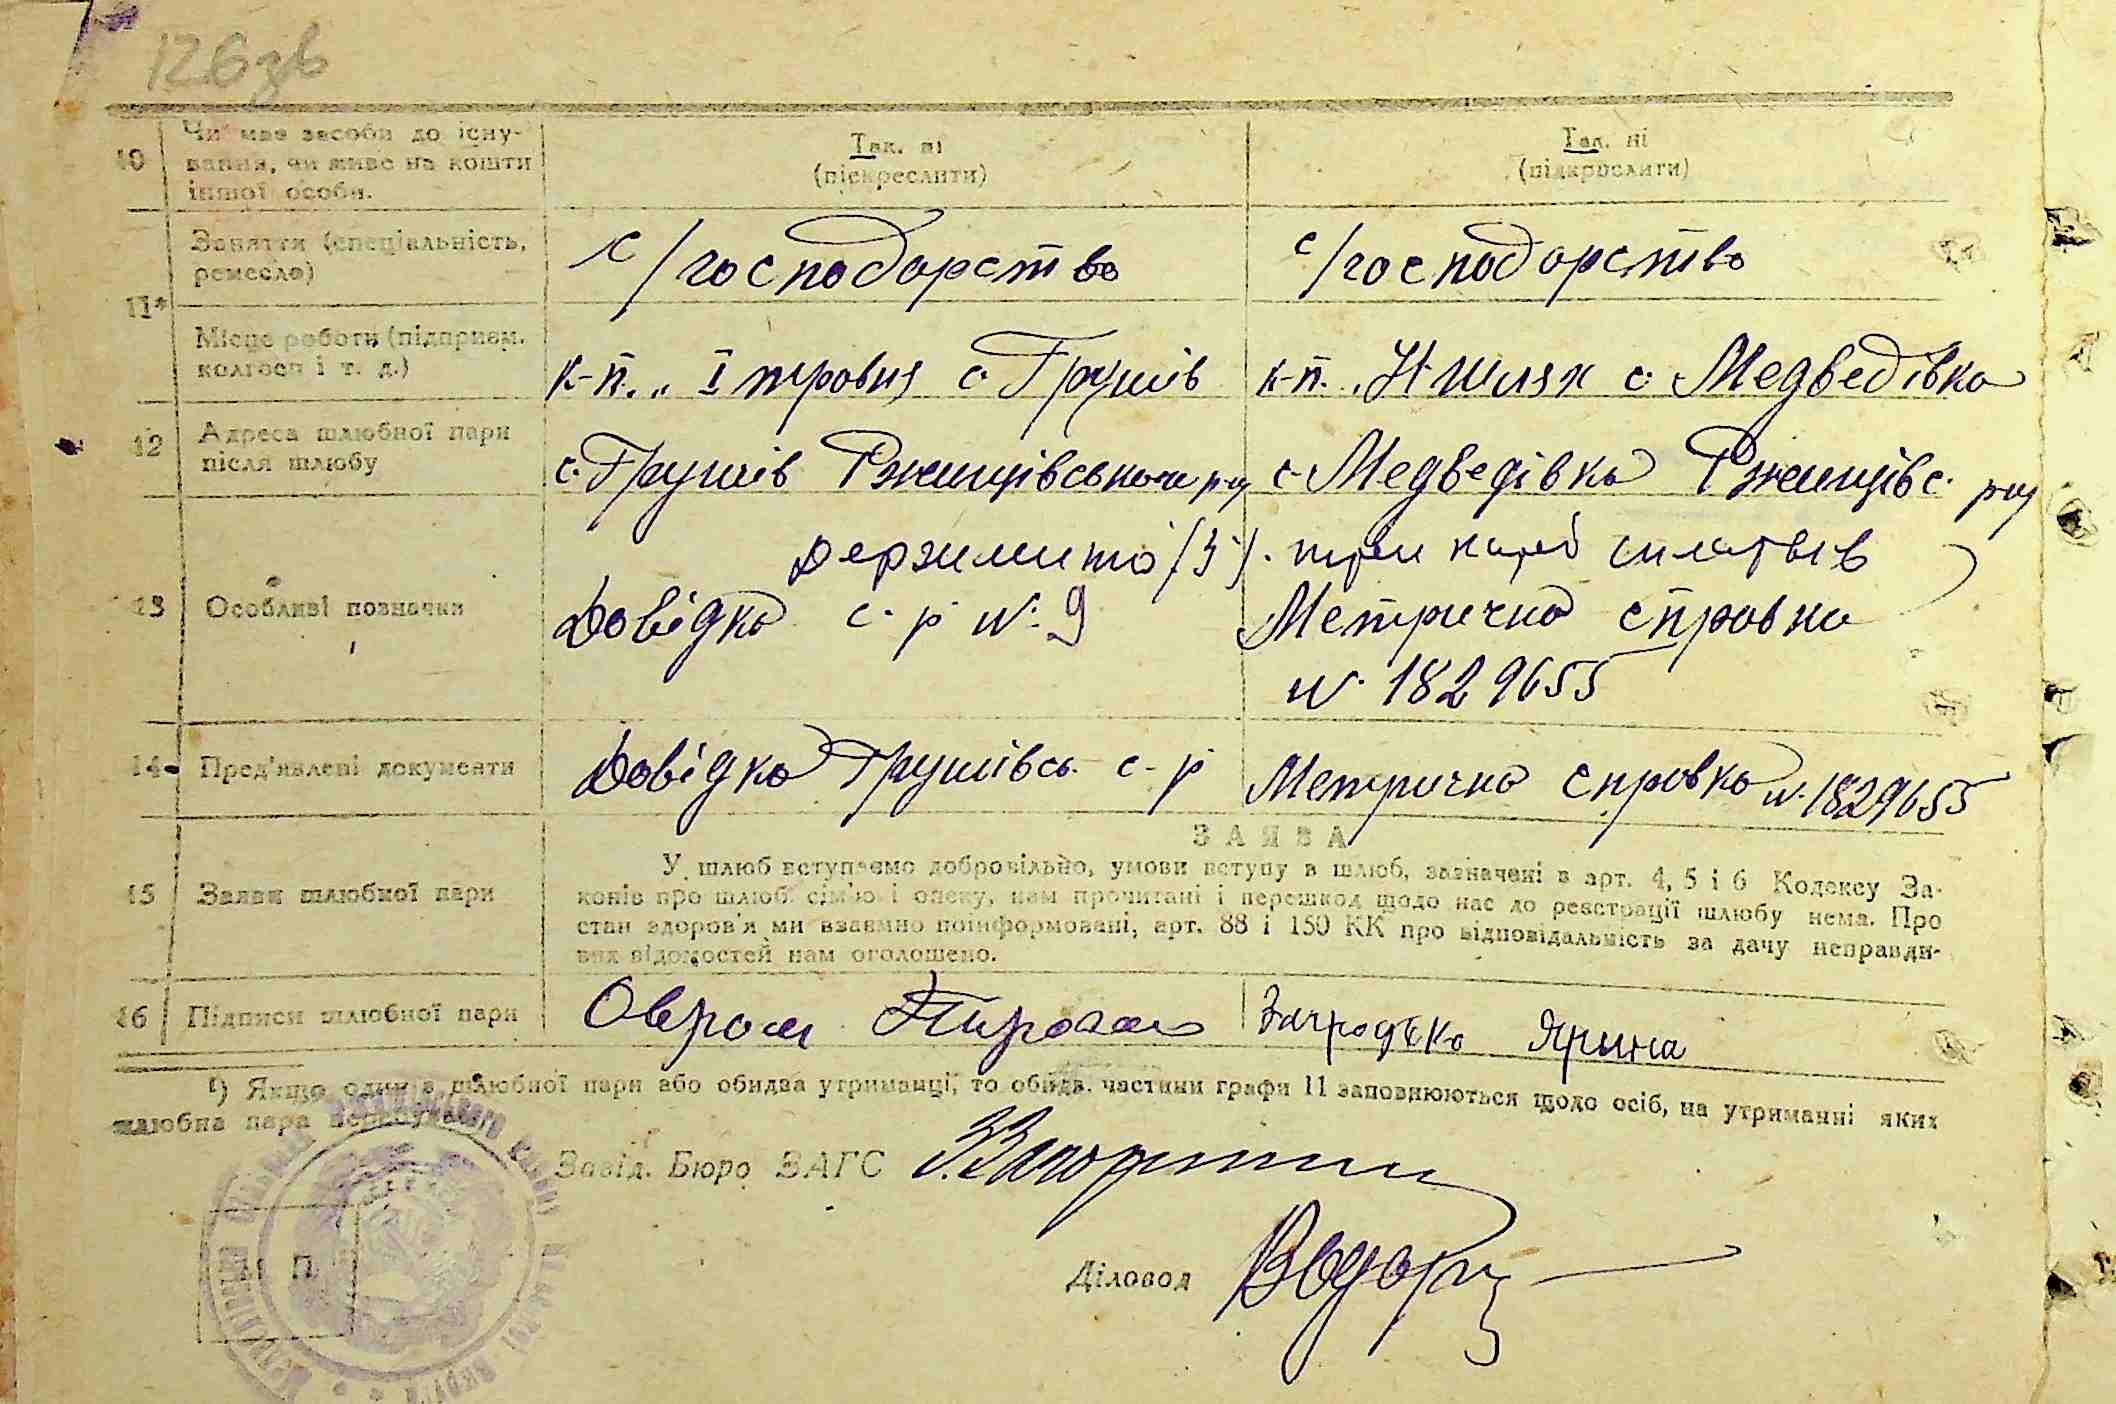 126 зв
10 Чи має засоби до існу-
вання, чи живе на кошти
іншої особи.
Так. ні
(підкреслити)
Так. ні
(підкреслити)
11*
Заняття (спеціальність,
ремесло)
с/господарство
с/господарство
Місце роботи (підприєм.
колгосп і т. д.)
к-п. „ І травня с. Грушів
к-п. „Н-шлях с. Медведівка
12 Адреса шлюбної пари
після шлюбу
с. Грушів Ржищівського р-ну
с. Медведівка Ржищівс. р-ну
13 Особливі позначки
Держмито (3). три карб сплатив
Довідка с-р №. 9
Метрична справка
№ 1829655
14. Пред'явлені документи
Довідка Грушівсь. с-р
Метрична справка №. 1829655
15 Заяви шлюбної пари
ЗАЯВА
У шлюб вступаємо добровільно, умови вступу в шлюб, зазначені в арт. 4, 5 і 6 Кодексу За-
конів про шлюб сім'ю і опеку, нам прочитані і перешкод щодо нас до реєстрації шлюбу нема. Про
стан здоров'я ми взаємно поінформовані, арт. 88 і 150 КК про відповідальність за дачу неправди-
вих відомостей нам оголошено.
16 Підписи шлюбної пари
Оврам
Ярина
¹) Якщо один з шлюбної пари або обидва утриманці, то обидв. частини графи 11 заповнюються щодо осіб, на утриманні яких
шлюбна пара
Завід. Бюро ЗАГС
Діловод
М. П.